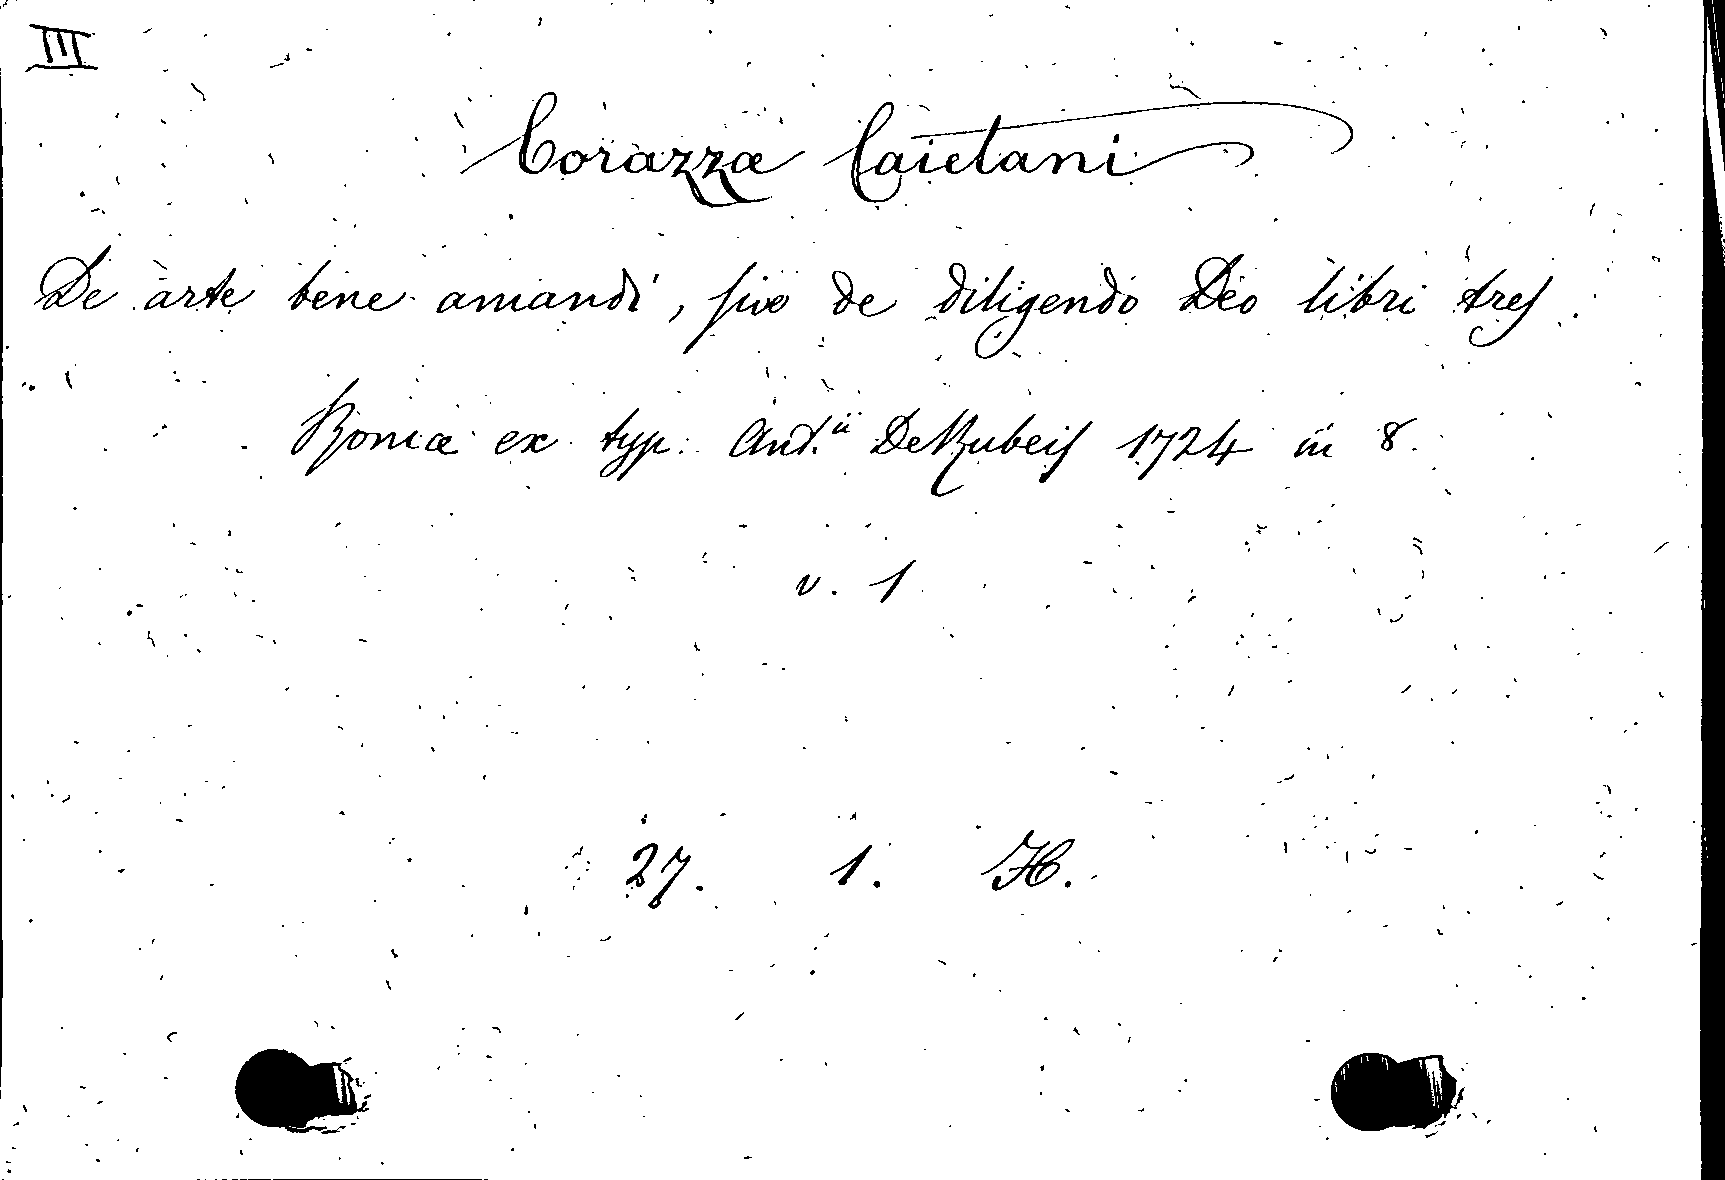 III
Corazzæ Caietani
De arte bene amandi, sive de diligendo Deo libri tres.
Romæ ex typ. Ant.ii De Rubeis 1724 in 8.
v. 1
27. 1. H.